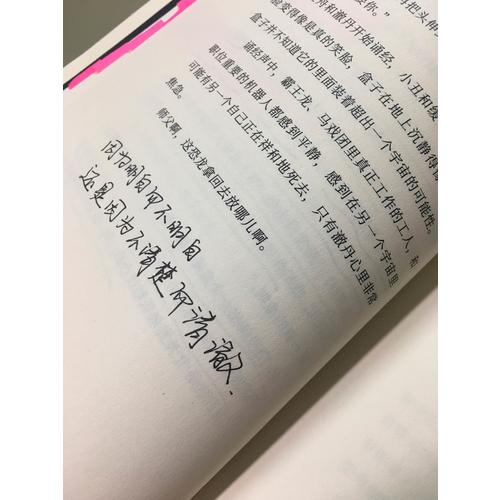 丹把头伸
你。”
舟和澈丹开始诵经，小丑和缓
变得像是真的笑脸，盒子在地上沉静得
盒子并不知道它的里面装着超出一个宇宙的可能性。
诵经声中，霸王龙、马戏团里真正工作的工人，和
职位重要的机器人都感到平静，感到在另一个宇宙里
可能有另一个自己正在祥和地死去，只有澈丹心里非常
焦急。
师父啊，这恐龙拿回去放哪儿啊。
因为明白而不明白
还是因为不清楚而清澈.